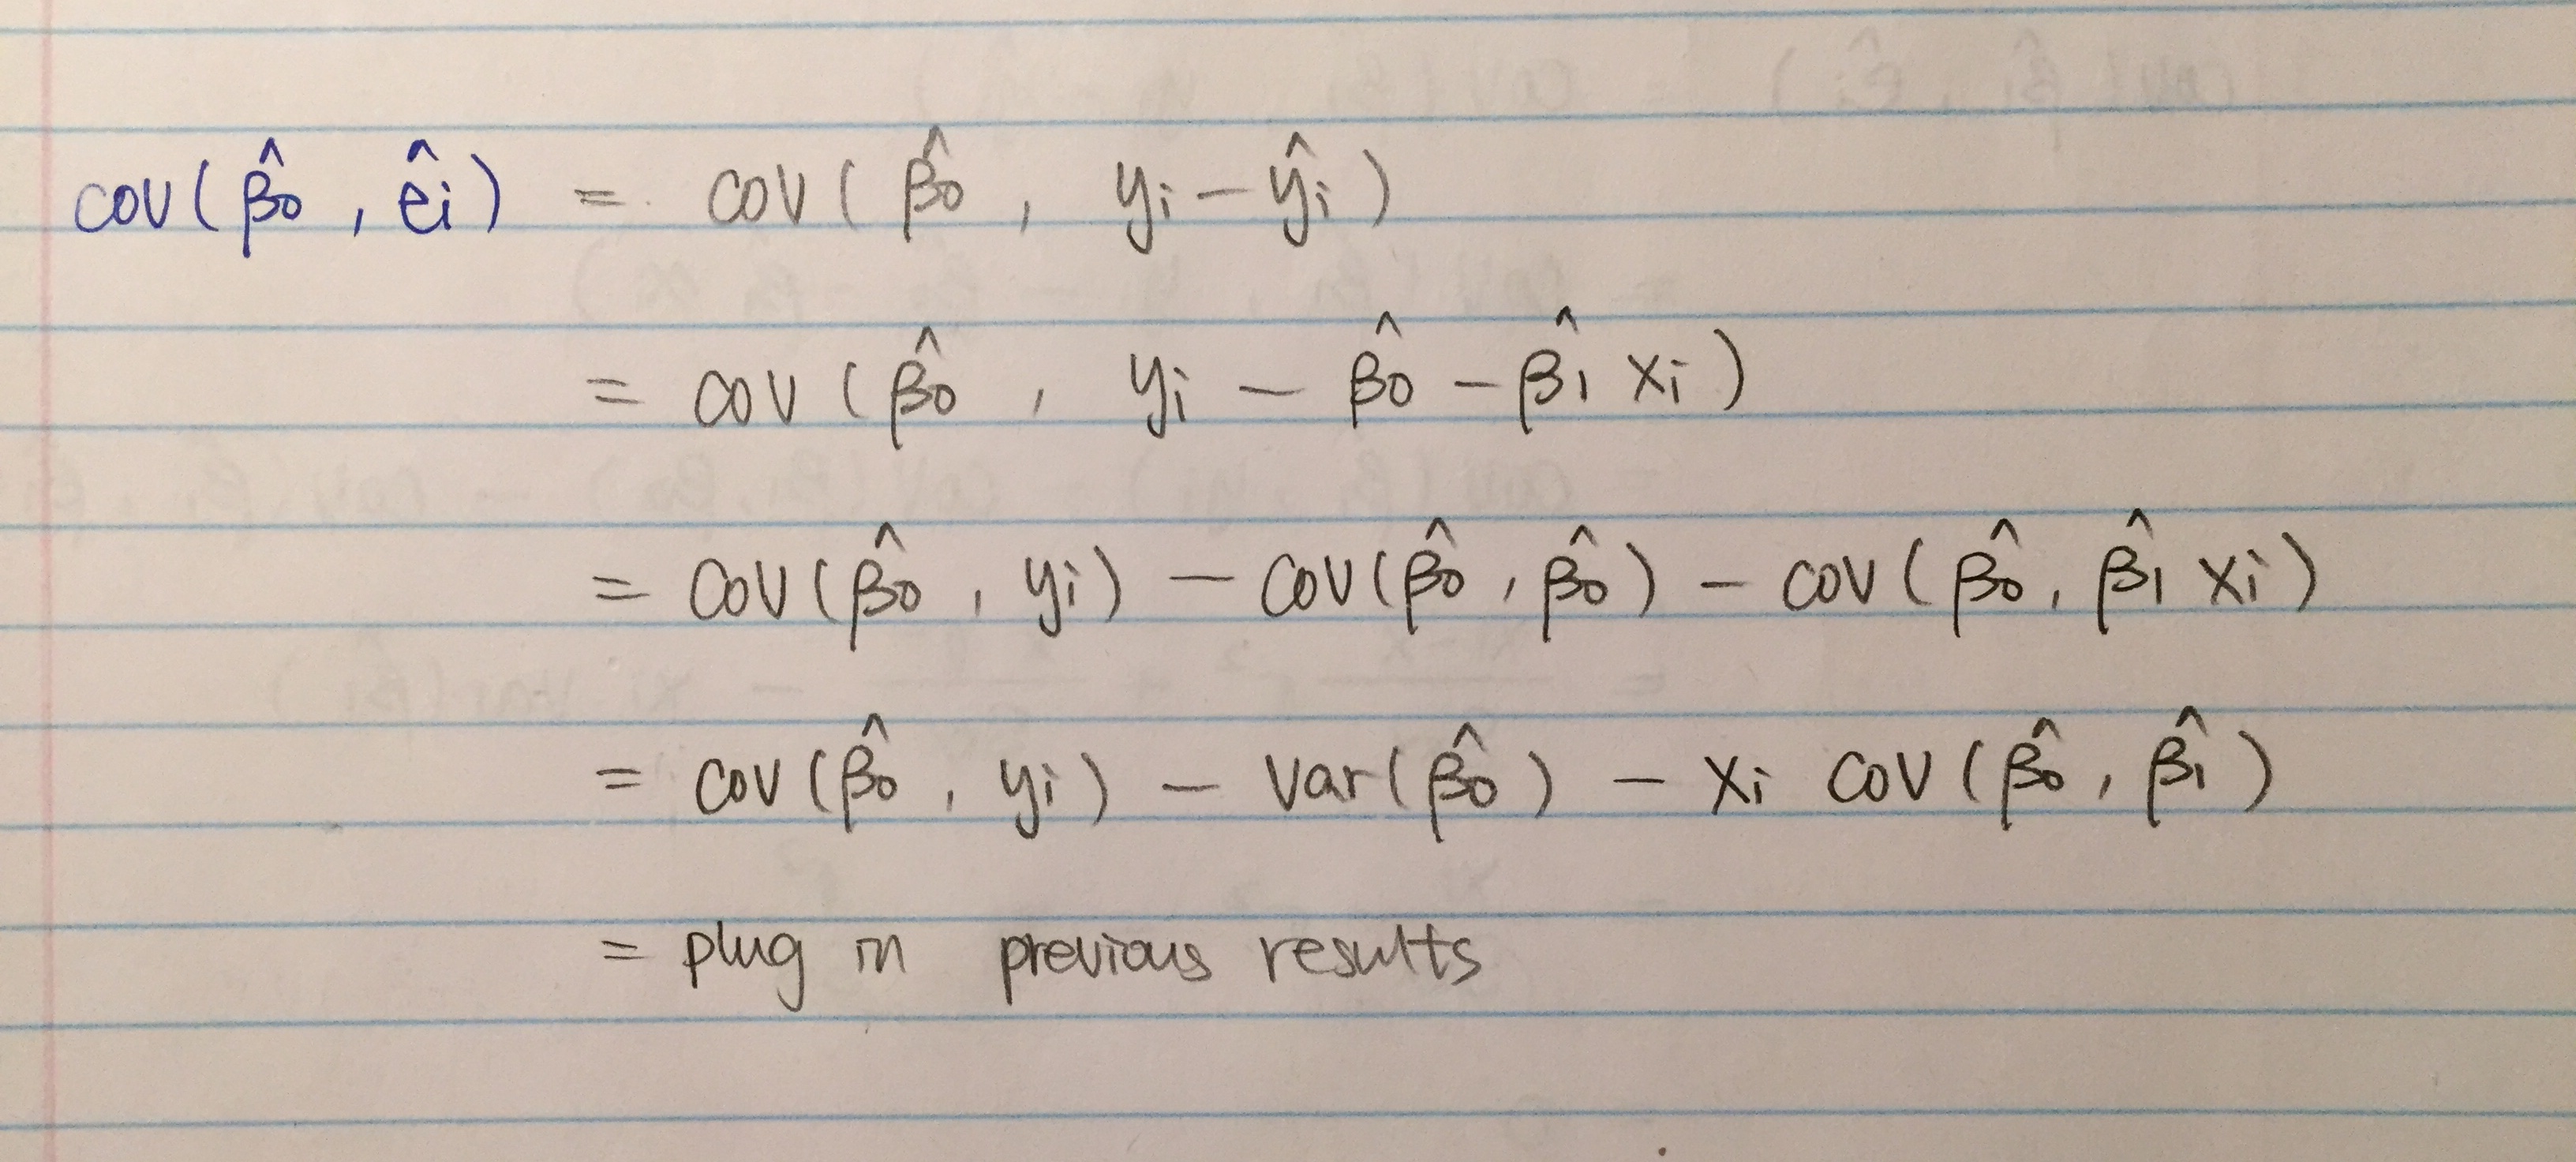 cov(β̂0 , êi) = cov(β̂0 , yi − ŷi)
= cov(β̂0 , yi − β̂0 − β̂1 xi)
= cov(β̂0 , yi) − cov(β̂0 , β̂0) − cov(β̂0 , β̂1 xi)
= cov(β̂0 , yi) − Var(β̂0) − xi cov(β̂0 , β̂1)
= plug in previous results